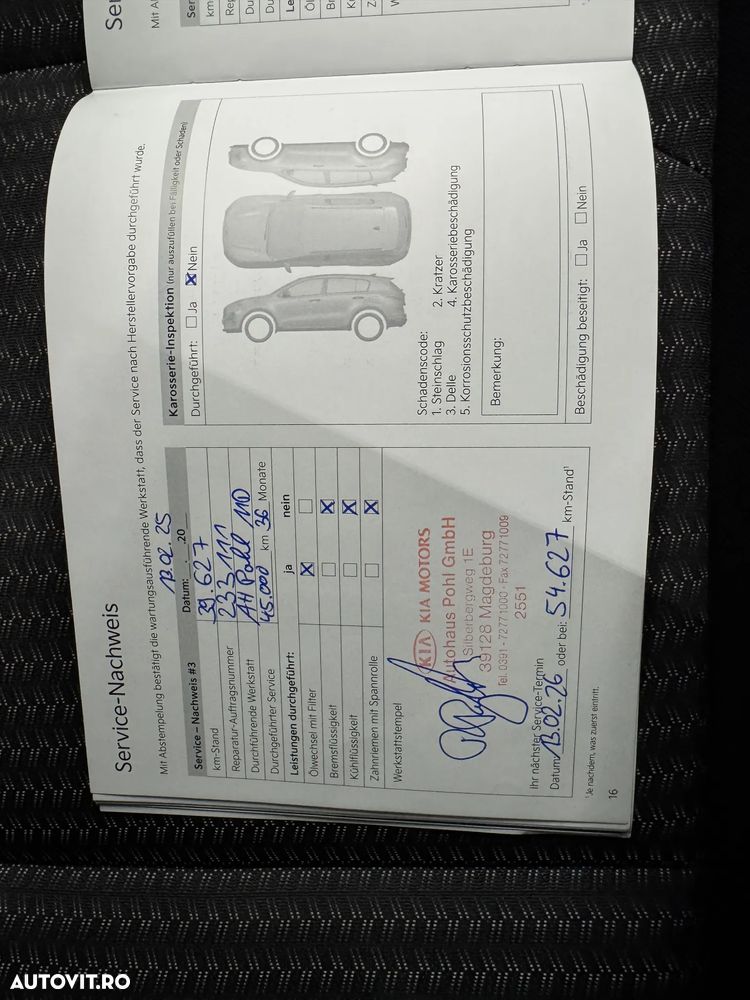 Service-Nachweis
Mit Abstempelung bestätigt die wartungsausführende Werkstatt, dass der Service nach Herstellervorgabe durchgeführt wurde.
Service – Nachweis #3
Datum: 13.02.25 . .20
km-Stand 39.627
Reparatur-Auftragsnummer 233 111
Durchführende Werkstatt AH Pohl MD
Durchgeführter Service 45.000 km 36 Monate
Leistungen durchgeführt: ja nein
Ölwechsel mit Filter
Bremsflüssigkeit
Kühlflüssigkeit
Zahnriemen mit Spannrolle
Werkstattstempel
KIA KIA MOTORS
Autohaus Pohl GmbH
Silberbergweg 1E
39128 Magdeburg
Tel. 0391 - 72771000 · Fax 72771009
2551
Ihr nächster Service-Termin
Datum: 13.02.26 oder bei: 54.627 km-Stand¹
¹Je nachdem, was zuerst eintritt.
16
Karosserie-Inspektion (nur auszufüllen bei Fälligkeit oder Schaden)
Durchgeführt: Ja Nein
Schadenscode:
1. Steinschlag 2. Kratzer
3. Delle 4. Karosseriebeschädigung
5. Korrosionsschutzbeschädigung
Bemerkung:
Beschädigung beseitigt: Ja Nein
Mit A
Ser
km
Du
AUTOVIT.RO